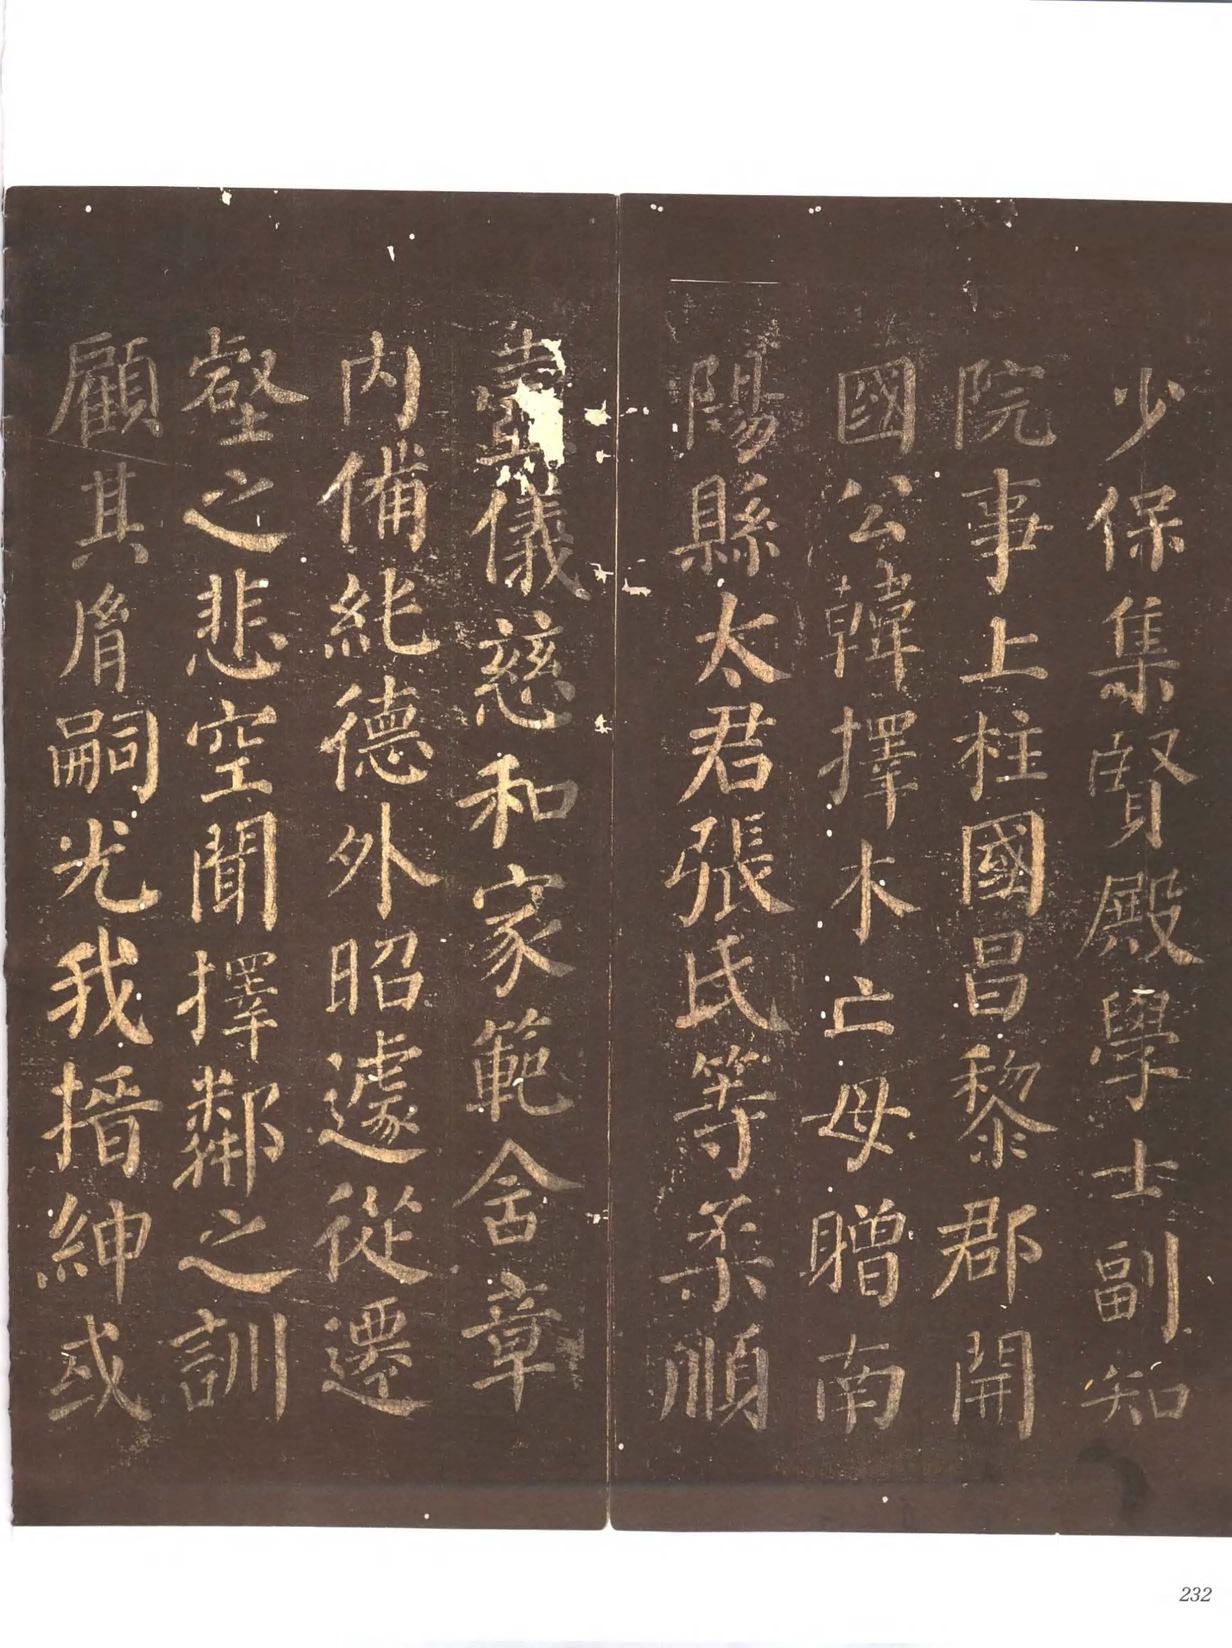 少保集賢殿學士副知
院事上柱國昌黎郡開
國公韓擇木亡母贈南
陽縣太君張氏等柔順
壼儀慈和家範含章
內備純德外昭遽從遷
壑之悲空聞擇鄰之訓
顧其胤嗣光我搢紳或
232